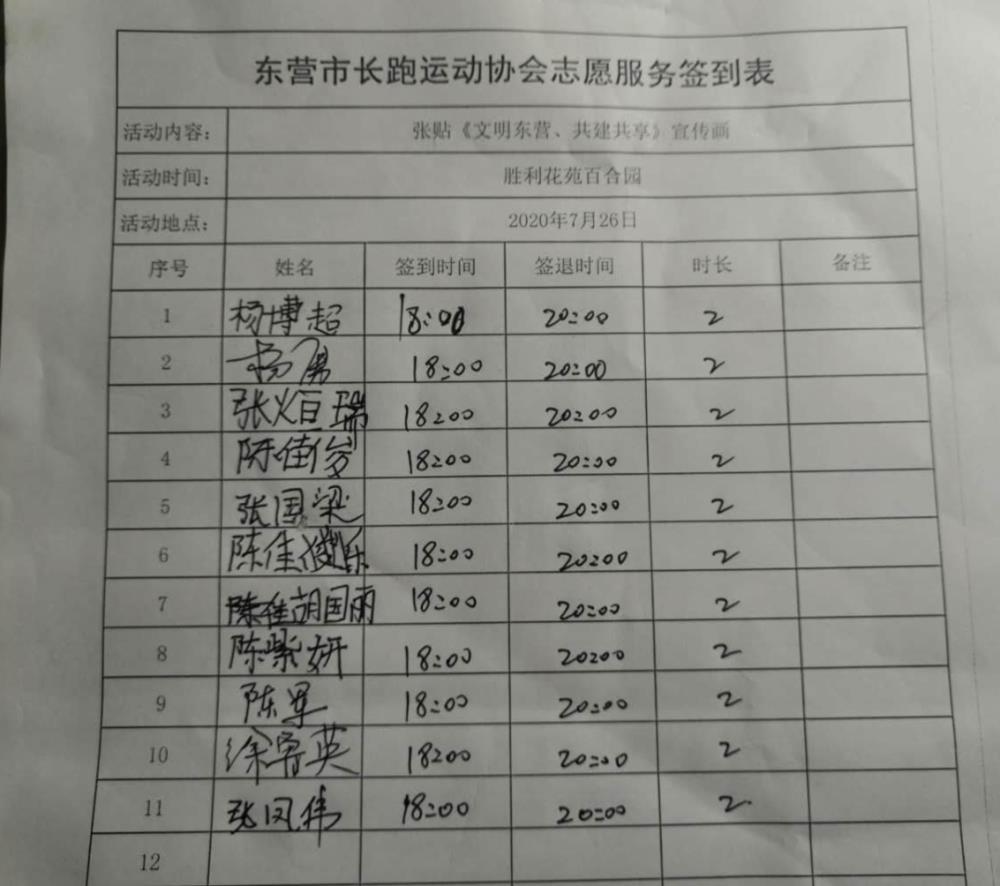 东营市长跑运动协会志愿服务签到表
活动内容： 张贴《文明东营、共建共享》宣传画
活动时间： 胜利花苑百合园
活动地点： 2020年7月26日
序号 姓名 签到时间 签退时间 时长 备注
1 杨博超 18:00 20:00 2
2 杨勇 18:00 20:00 2
3 张烜瑞 18:00 20:00 2
4 陈佳俊 18:00 20:00 2
5 张国梁 18:00 20:00 2
6 陈佳 乐 18:00 20:00 2
7 胡国雨 18:00 20:00 2
8 陈紫妍 18:00 20:00 2
9 陈军 18:00 20:00 2
10 徐 英 18:00 20:00 2
11 张凤伟 18:00 20:00 2
12